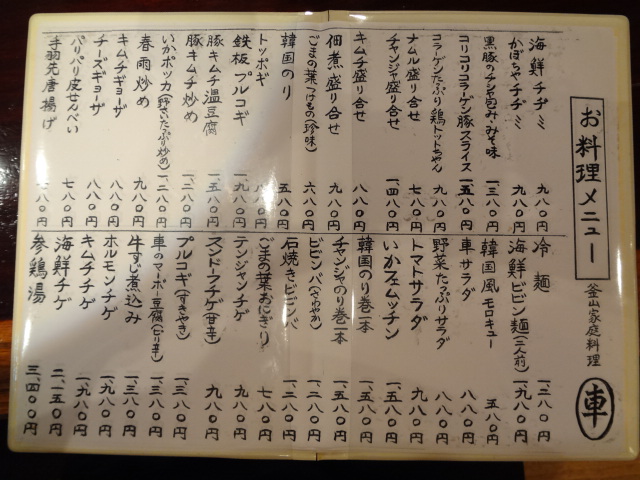 お料理メニュー
釜山家庭料理
車
海鮮チヂミ 九八〇円
かぼちゃチヂミ 九八〇円
黒豚のチシャ包み・みそ味 一、三八〇円
コリコリコラーゲン豚スライス 一、五八〇円
コラーゲンたっぷり鶏トットちゃん 九八〇円
ナムル盛り合せ 七八〇円
チャンジャ盛り合せ 一、四八〇円
キムチ盛り合せ 八八〇円
佃煮盛り合せ 九八〇円
ごまの葉(つけもの珍味) 六八〇円
韓国のり 五八〇円
トッポギ 八八〇円
鉄板プルコギ 一、九八〇円
豚キムチ温豆腐 一、五八〇円
豚キムチ炒め 一、三八〇円
いかポッカ(野さいたっぷり炒め) 一、二八〇円
春雨炒め 九八〇円
キムチギョーザ 八八〇円
チーズギョーザ 八八〇円
パリパリ皮せんべい 七八〇円
手羽先唐揚げ 七八〇円
冷麺 一、二八〇円
海鮮ビビン麺(二人前) 一、九八〇円
韓国風モロキュー 五八〇円
車サラダ 八八〇円
野菜たっぷりサラダ 八八〇円
トマトサラダ 九八〇円
いかフェムッチン 一、五八〇円
韓国のり巻一本 一、五八〇円
チャンジャのり巻一本 一、五八〇円
ビビンバ(さわやか) 一、二八〇円
石焼きビビンバ 一、二八〇円
ごまの葉おにぎり 七八〇円
テンジャンチゲ 九八〇円
スンドーフチゲ(甘辛) 九八〇円
プルコギ(すきやき) 一、三八〇円
車のマーボー豆腐(ピリ辛) 一、三八〇円
牛すじ煮込み 一、三八〇円
ホルモンチゲ 一、九八〇円
キムチチゲ 一、九八〇円
海鮮チゲ 二、一五〇円
参鶏湯 三、四〇〇円